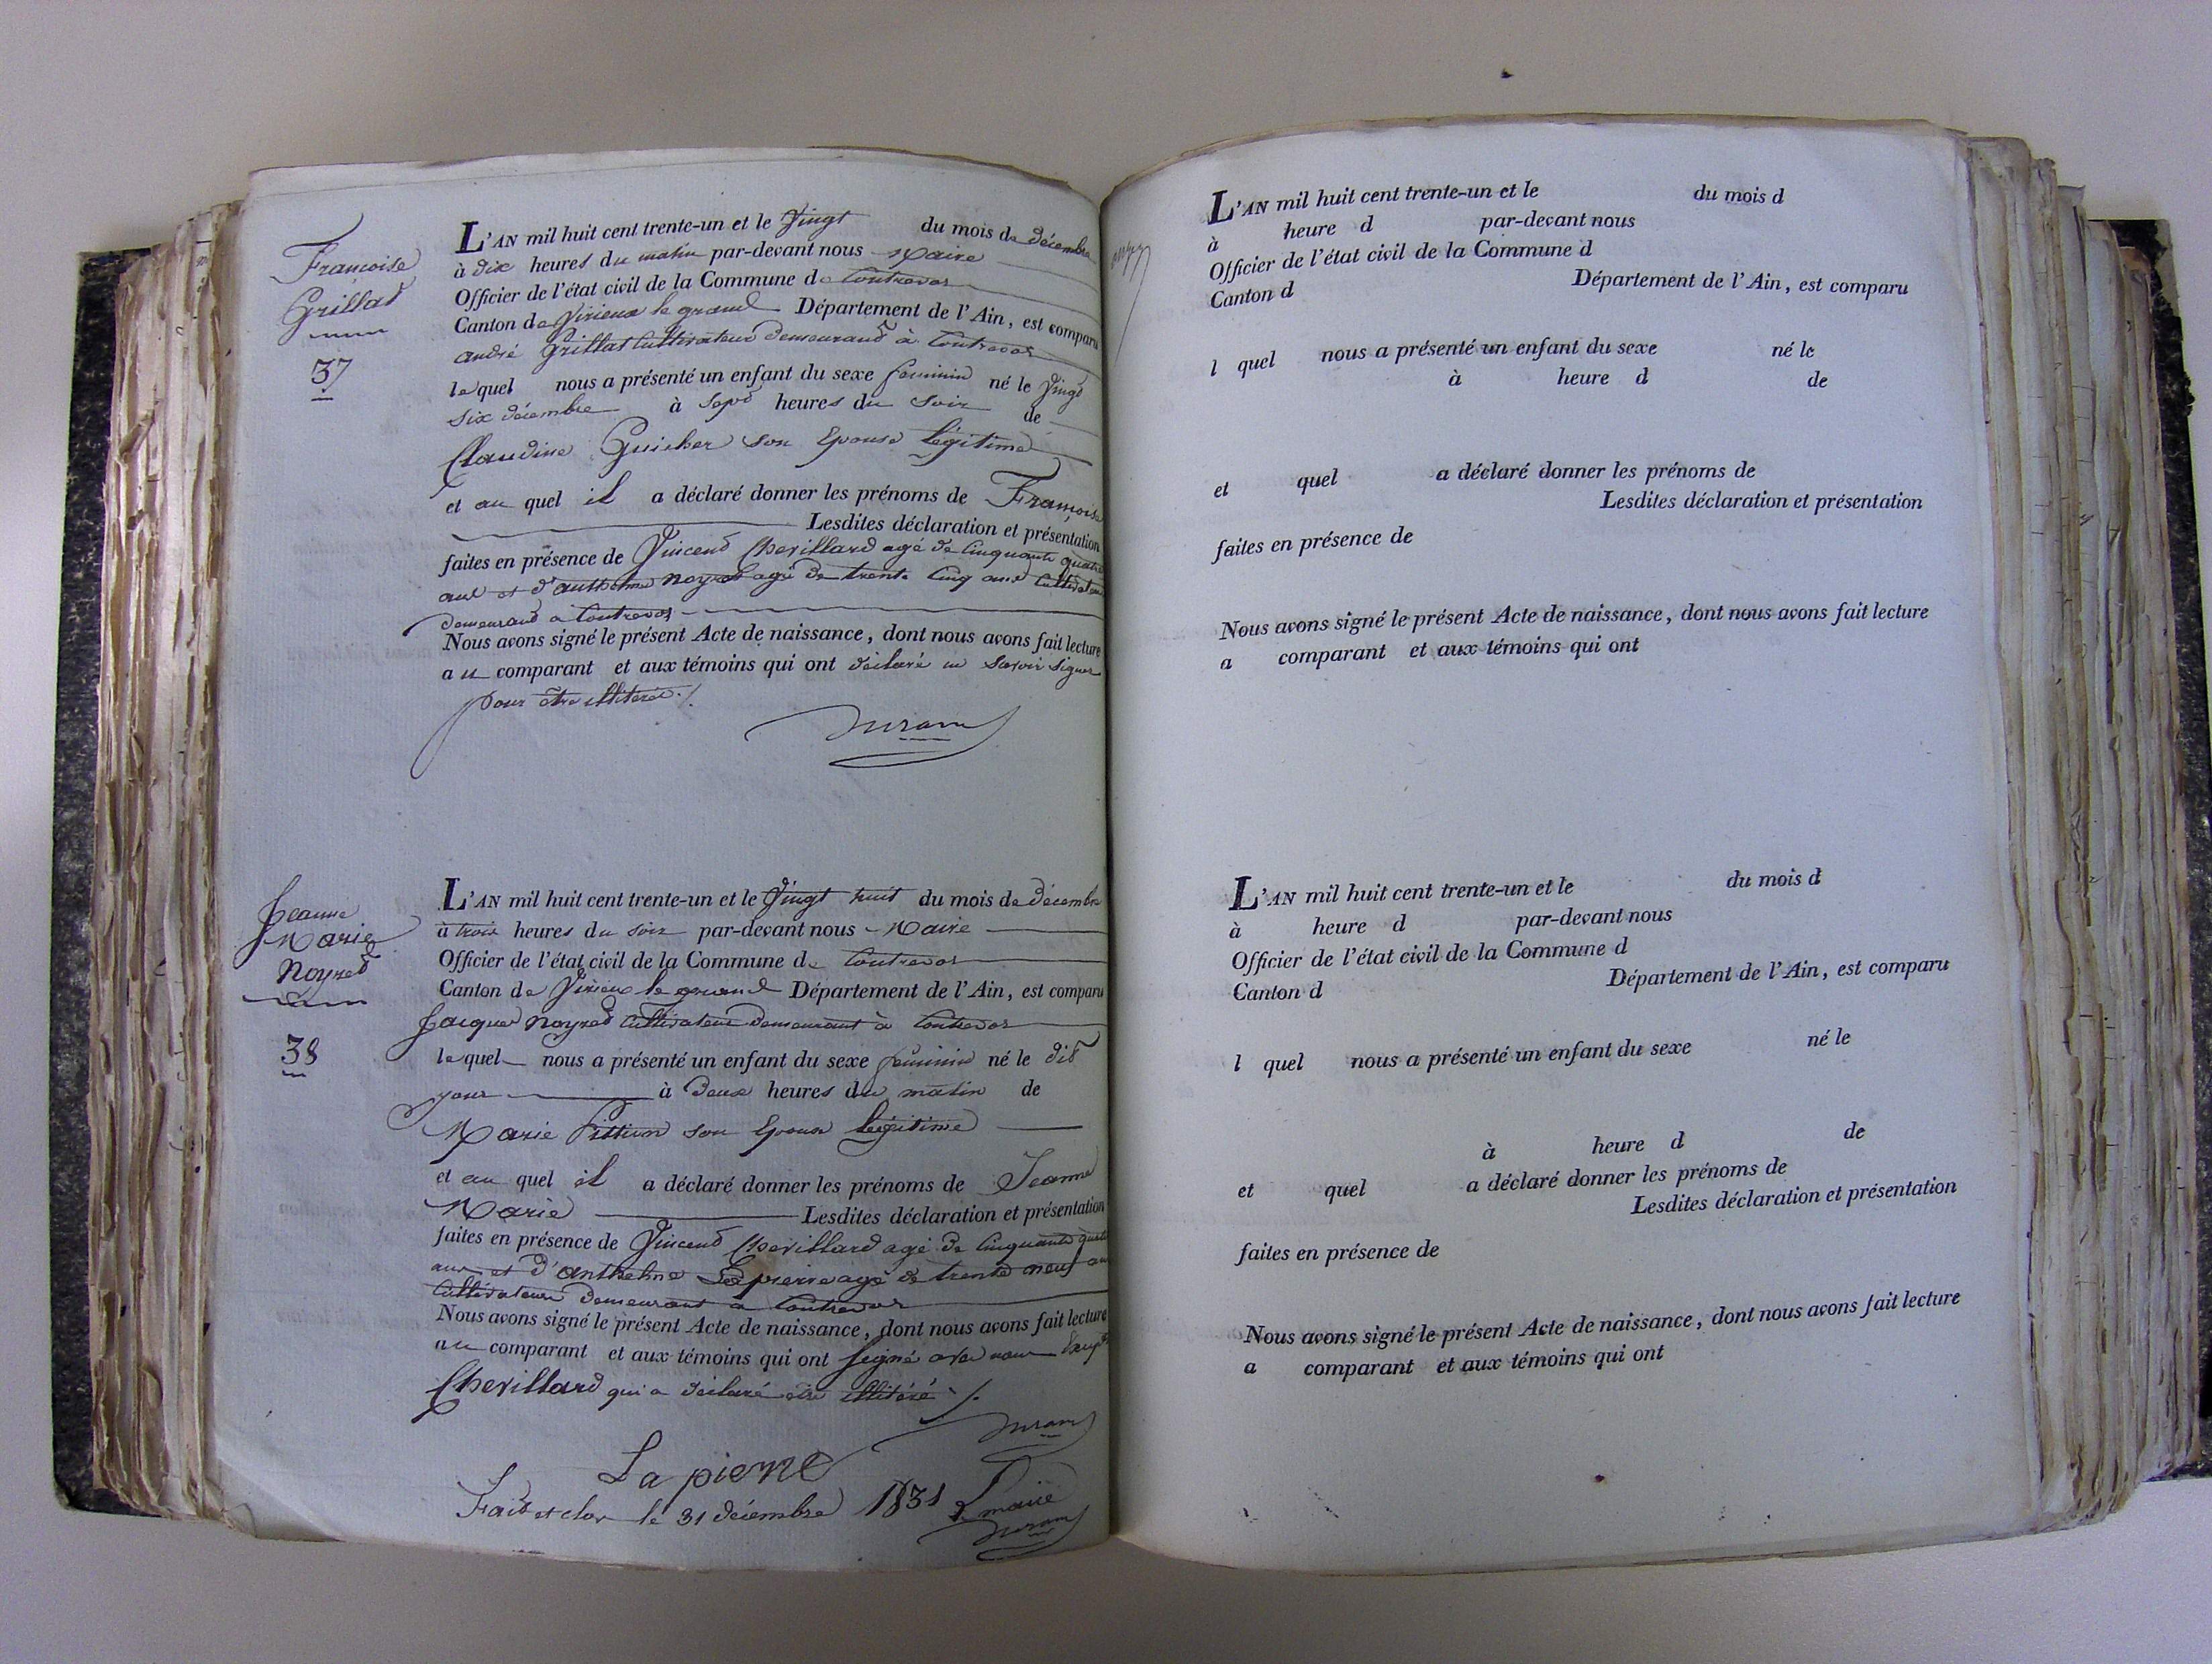 Françoise
Grillat
37
L'AN mil huit cent trente-un et le vingt du mois de décembre
à dix heures du matin par-devant nous Maire
Officier de l'état civil de la Commune de Contrevoz
Canton de Virieux le grand Département de l'Ain, est comparu
andré Grillat Cultivateur demeurant à Contrevoz
lequel nous a présenté un enfant du sexe féminin né le vingt
six décembre à sept heures du soir de
Claudine Guicher son Epouse légitime
et au quel il a déclaré donner les prénoms de Françoise
Lesdites déclaration et présentation
faites en présence de Vincent Chevillard agé de Cinquante quatre
ans et d'anthelme Noyret agé de trente Cinq ans Cultivateurs
demeurant à Contrevoz
Nous avons signé le présent Acte de naissance, dont nous avons fait lecture
au comparant et aux témoins qui ont déclaré ne savoir signer
pour être illitéré ./.
Jeanne
Marie
Noyret
38
L'AN mil huit cent trente-un et le vingt huit du mois de décembre
à trois heures du soir par-devant nous Maire
Officier de l'état civil de la Commune de Contrevoz
Canton de Virieux le grand Département de l'Ain, est comparu
Jacques Noyret Cultivateur demeurant à Contrevoz
lequel nous a présenté un enfant du sexe féminin né le dit
jour à deux heures du matin de
Marie son Epouse légitime
et au quel il a déclaré donner les prénoms de Jeanne
Marie Lesdites déclaration et présentation
faites en présence de Vincent Chevillard agé de Cinquante quatre
ans et d'anthelme Lapierre agé de trente neuf ans
Cultivateurs demeurant à Contrevoz
Nous avons signé le présent Acte de naissance, dont nous avons fait lecture
au comparant et aux témoins qui ont signé avec nous Excepté
Chevillard qui a déclaré être illitéré ./.
Lapierre
Fait et clos le 31 décembre 1831 Le maire
L'AN mil huit cent trente-un et le du mois d
à heure d par-devant nous
Officier de l'état civil de la Commune d
Canton d Département de l'Ain, est comparu
l quel nous a présenté un enfant du sexe né le
à heure d de
et quel a déclaré donner les prénoms de
Lesdites déclaration et présentation
faites en présence de
Nous avons signé le présent Acte de naissance, dont nous avons fait lecture
a comparant et aux témoins qui ont
L'AN mil huit cent trente-un et le du mois d
à heure d par-devant nous
Officier de l'état civil de la Commune d
Canton d Département de l'Ain, est comparu
l quel nous a présenté un enfant du sexe né le
à heure d de
et quel a déclaré donner les prénoms de
Lesdites déclaration et présentation
faites en présence de
Nous avons signé le présent Acte de naissance, dont nous avons fait lecture
a comparant et aux témoins qui ont